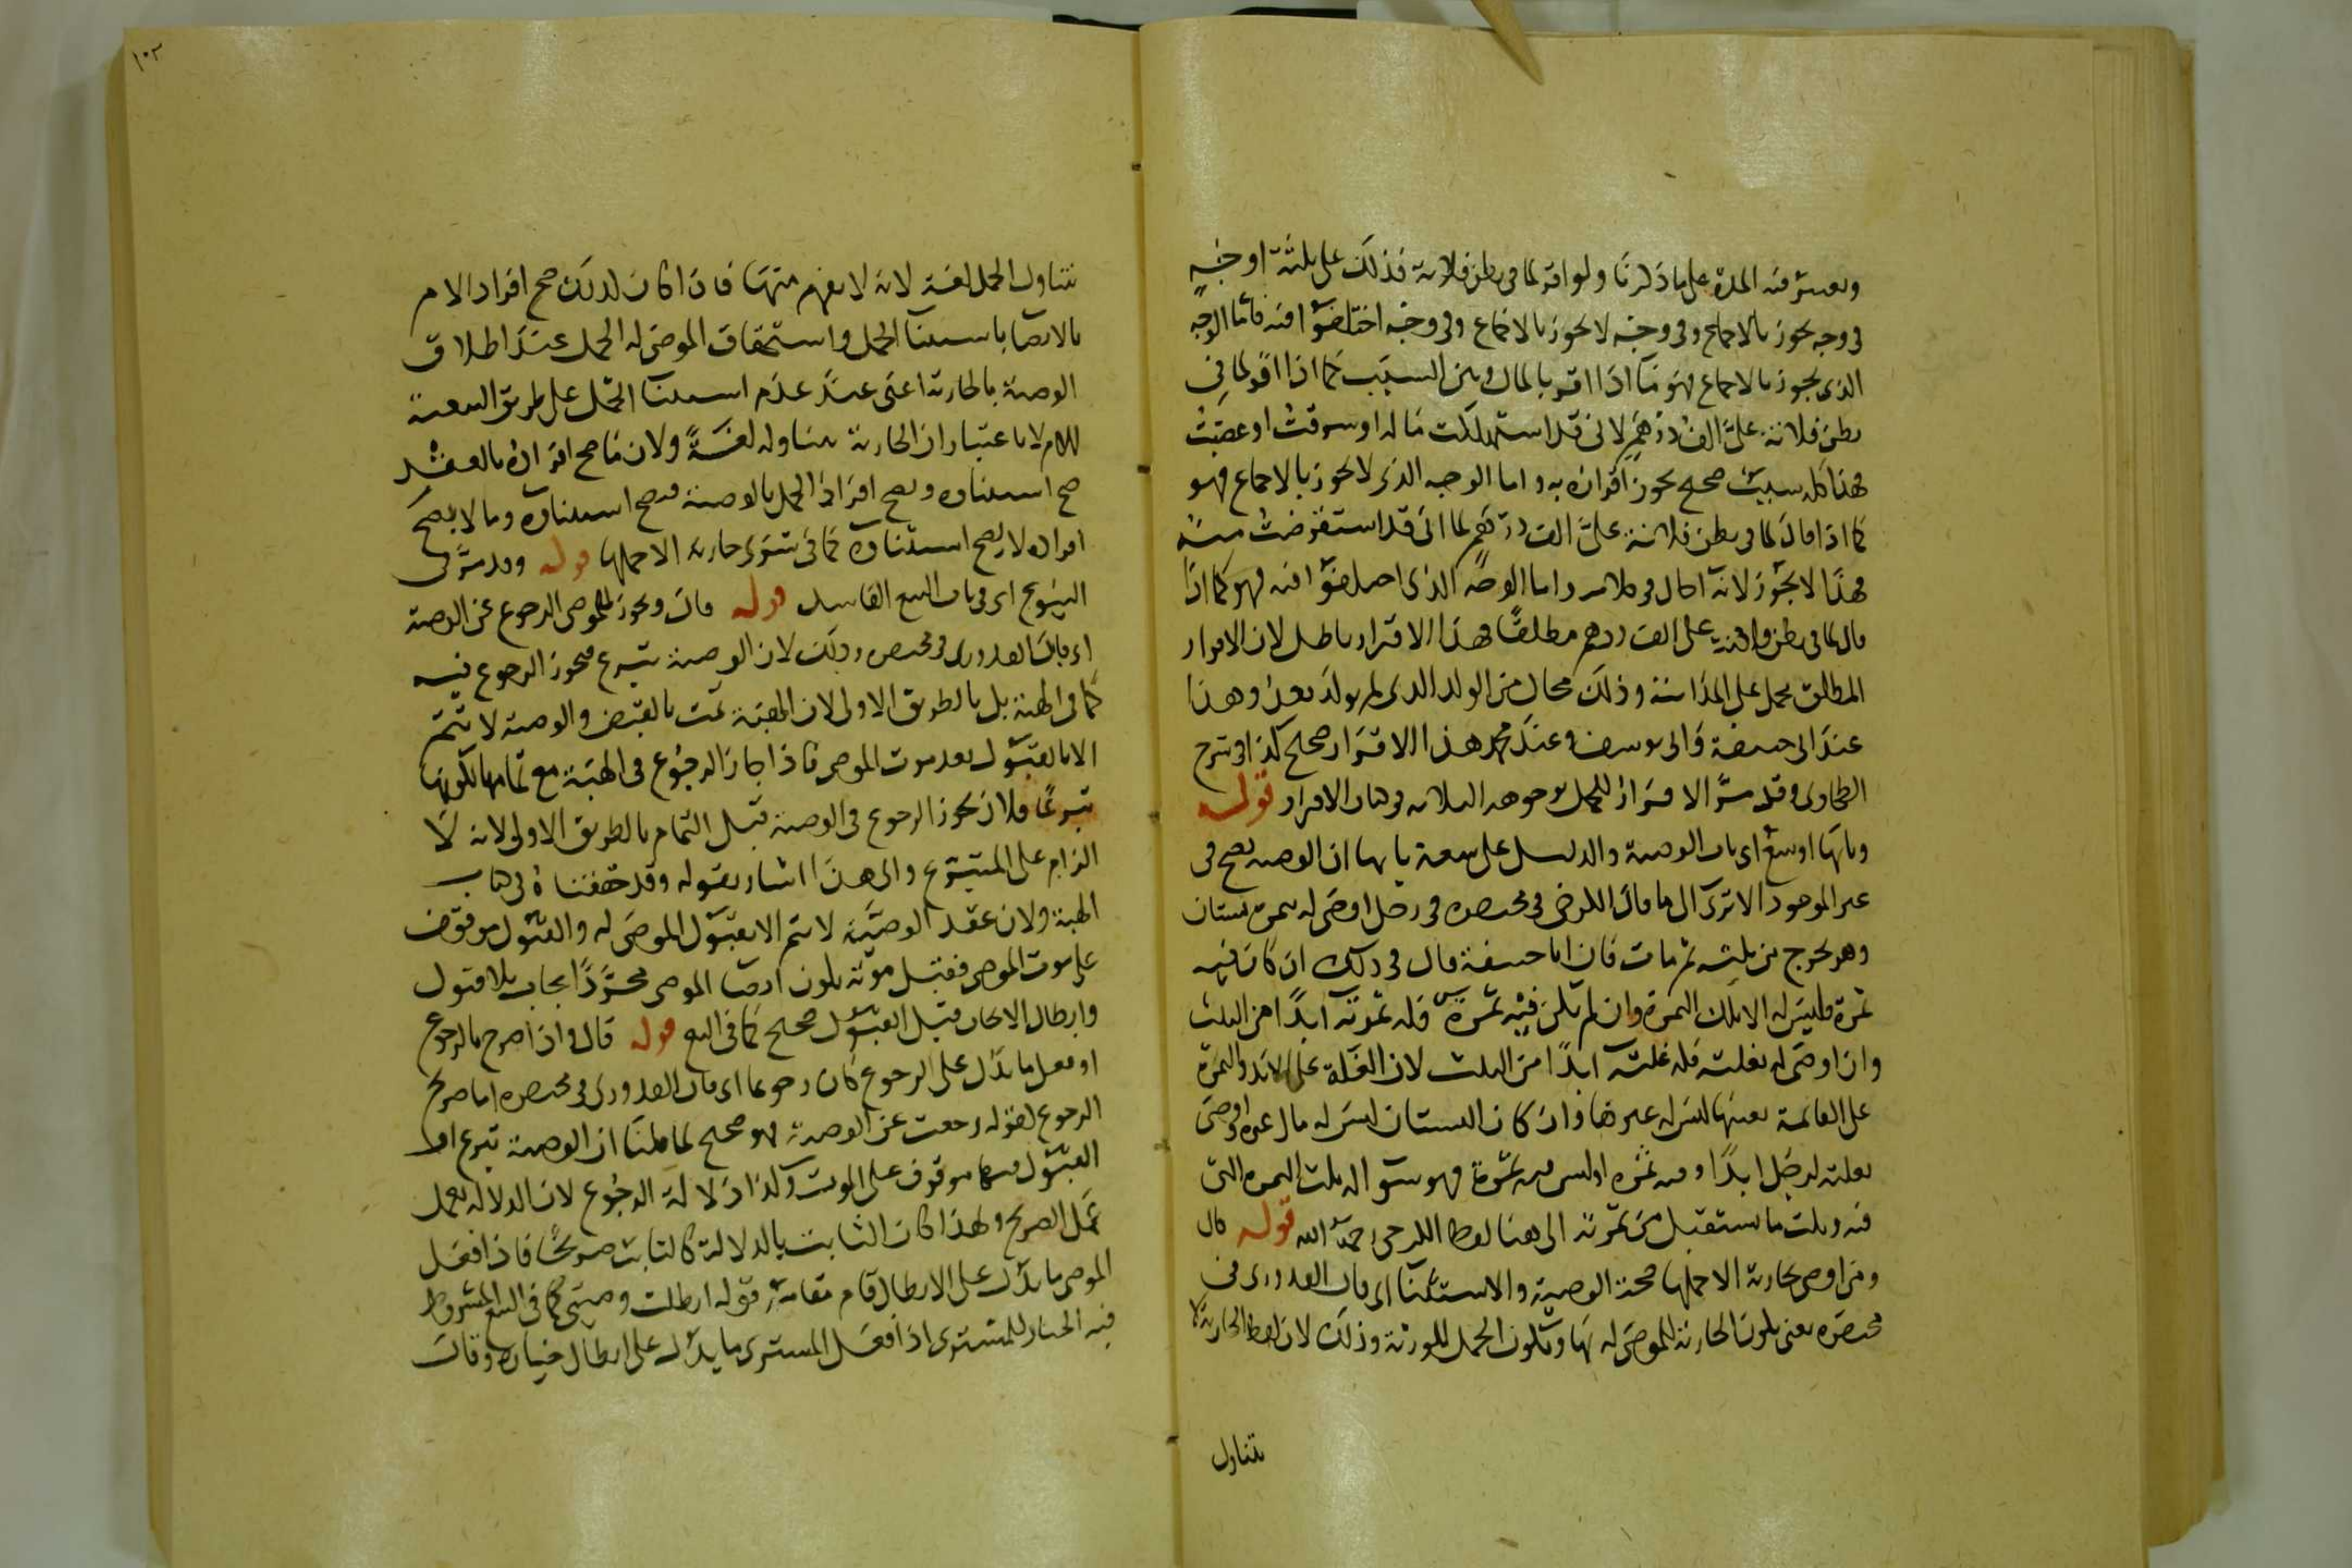 ويعتبر فيه المدة على ما ذكرنا ولو اقر لما في بطن فلانة فذلك على ثلثة اوجه
في وجه يجوز بالاجماع وفي وجه لا يجوز بالاجماع وفي وجه اختلفوا فيه فاما الوجه
الذي يجوز بالاجماع فهو ما اذا اقر بالمال وبين السبب كما اذا اقر لما في
بطن فلانة على الف درهم لاني قد استهلكت ماله او سرقت او غصبت
فهذا كله سبب صحيح يجوز اقراره به واما الوجه الذي لا يجوز بالاجماع فهو
كما اذا قال لما في بطن فلانة على الف درهم لما اني قد استقرضت منه
فهذا لا يجوز لانه احال في كلامه واما الوجه الذي اختلفوا فيه فهو كما اذا
قال لما في بطن على الف درهم مطلقا فهذا الاقرار باطل لان الاقرار
المطلق يحمل على المداينة وذلك محال من الولد الذي لم يولد بعد وهذا
عند ابي حنيفة وابي يوسف وعند محمد هذا الاقرار صحيح كذا في شرح
الطحاوي وقد مر الاقرار للحمل بوجوهه الثلاثة في كتاب الاقرار قوله
وبابها اوسع اي باب الوصية والدليل على سعة بابها ان الوصية يصح في
غير الموجود الا ترى الى ما قال الكرخي في مختصره في رجل اوصى له بثمرة بستان
وهو يخرج من ثلثه ثم مات فان ابا حنيفة قال في ذلك ان كان فيه
ثمرة فليس له الا تلك الثمرة وان لم تكن فيه ثمرة فله ثمرته ابدا من الثلث
وان اوصى له بغلته فله غلته ابدا من الثلث لان الغلة على الابد والثمرة
على القائمة بعينها ليس له غيرها وان كان البستان ليس له مال غيره اوصى
بغلته لرجل ابدا وفيه ثمرة او ليس فيه ثمرة فهو سوا له ثلث الثمرة التي
فيه وثلث ما يستقبل من ثمرته الى هنا لفظ الكرخي رحمه الله قوله قال
ومن اوصى بجارية الا حملها صحت الوصية والاستثنا اي قال القدوري في
مختصره يعني يكون الجارية للموصى له بها ويكون الحمل للورثة وذلك لان لفظ الجارية لا
تتناول
١٠٢
تتناول الحمل لغة لانه لا يفهم منها فاذا كان لذلك صح افراد الام
بالايصا باستثنا الحمل واستحقاق الموصى له الحمل عند اطلاق
الوصية بالجارية اعني عند عدم استثنا الحمل على طريق التبعية
للام لا باعتبار ان الجارية تتناوله لغة ولان ما صح افراده بالعقد
صح استثناؤه ويصح افراد الحمل بالوصية فصح استثناؤه وما لا يصح
افراده لا يصح استثناؤه كما في شرى جارية الا حملها قوله وقد مر في
البيوع اي في باب البيع الفاسد قوله قال ويجوز للموصي الرجوع عن الوصية
اي قال القدوري في مختصره وذلك لان الوصية تبرع فيجوز الرجوع فيه
كما في الهبة بل بالطريق الاولى لان الهبة تمت بالقبض والوصية لا تتم
الا بالقبول بعد موت الموصي فاذا جاز الرجوع في الهبة مع تمامها لكونها
تبرعا فلان يجوز الرجوع في الوصية قبل التمام بالطريق الاولى لانه لا
الزام على المتبرع والى هذا اشار بقوله وقد حققناه في كتاب
الهبة ولان عقد الوصية لا يتم الا بقبول الموصى له والقبول موقوف
على موت الموصي فقبل موته يكون ايصا الموصي مجردا ايجاب بلا قبول
وابطال الايجاب قبل القبول صحيح كما في البيع قوله قال واذا صرح بالرجوع
او فعل ما يدل على الرجوع كان رجوعا اي قال القدوري في مختصره اما صريح
الرجوع لقوله رجعت عن الوصية فهو صحيح لما قلنا ان الوصية تبرع او
القبول فيها موقوف على الموت وكذا دلالة الرجوع لان الدلالة يعمل
عمل الصريح ولهذا كان الثابت بالدلالة كالثابت صريحا فاذا فعل
الموصي ما يدل على الابطال قام مقامه قوله ابطلت وصيتي كما في البيع المشروط
فيه الخيار للمشتري اذا فعل المشتري ما يدل على ابطال خياره وقال